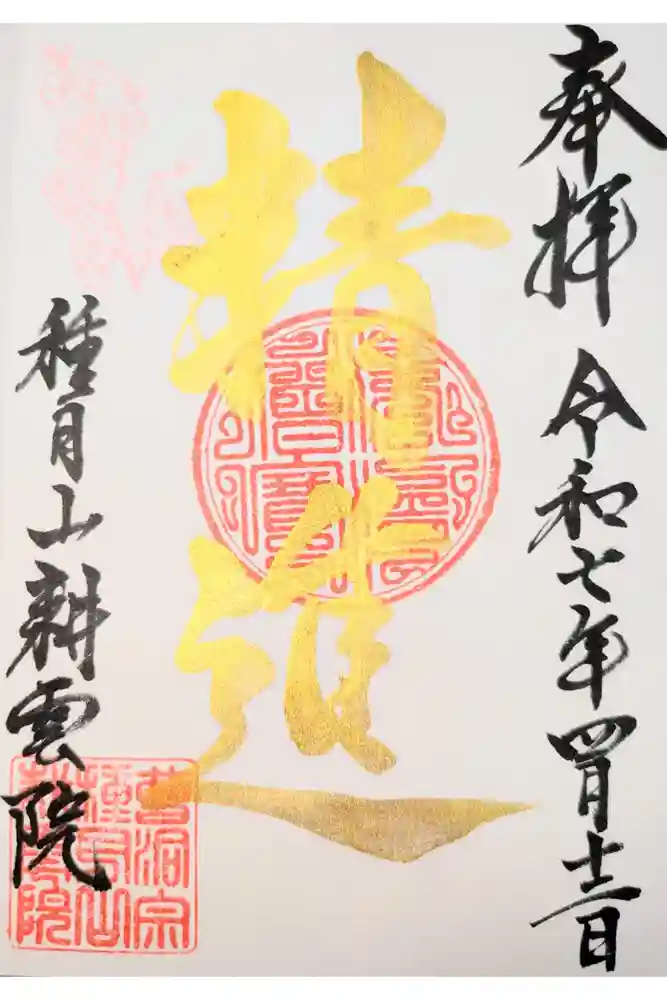 奉拝 令和七年四月十三日
精進
種月山耕雲院
曹洞宗
種月山
耕雲院